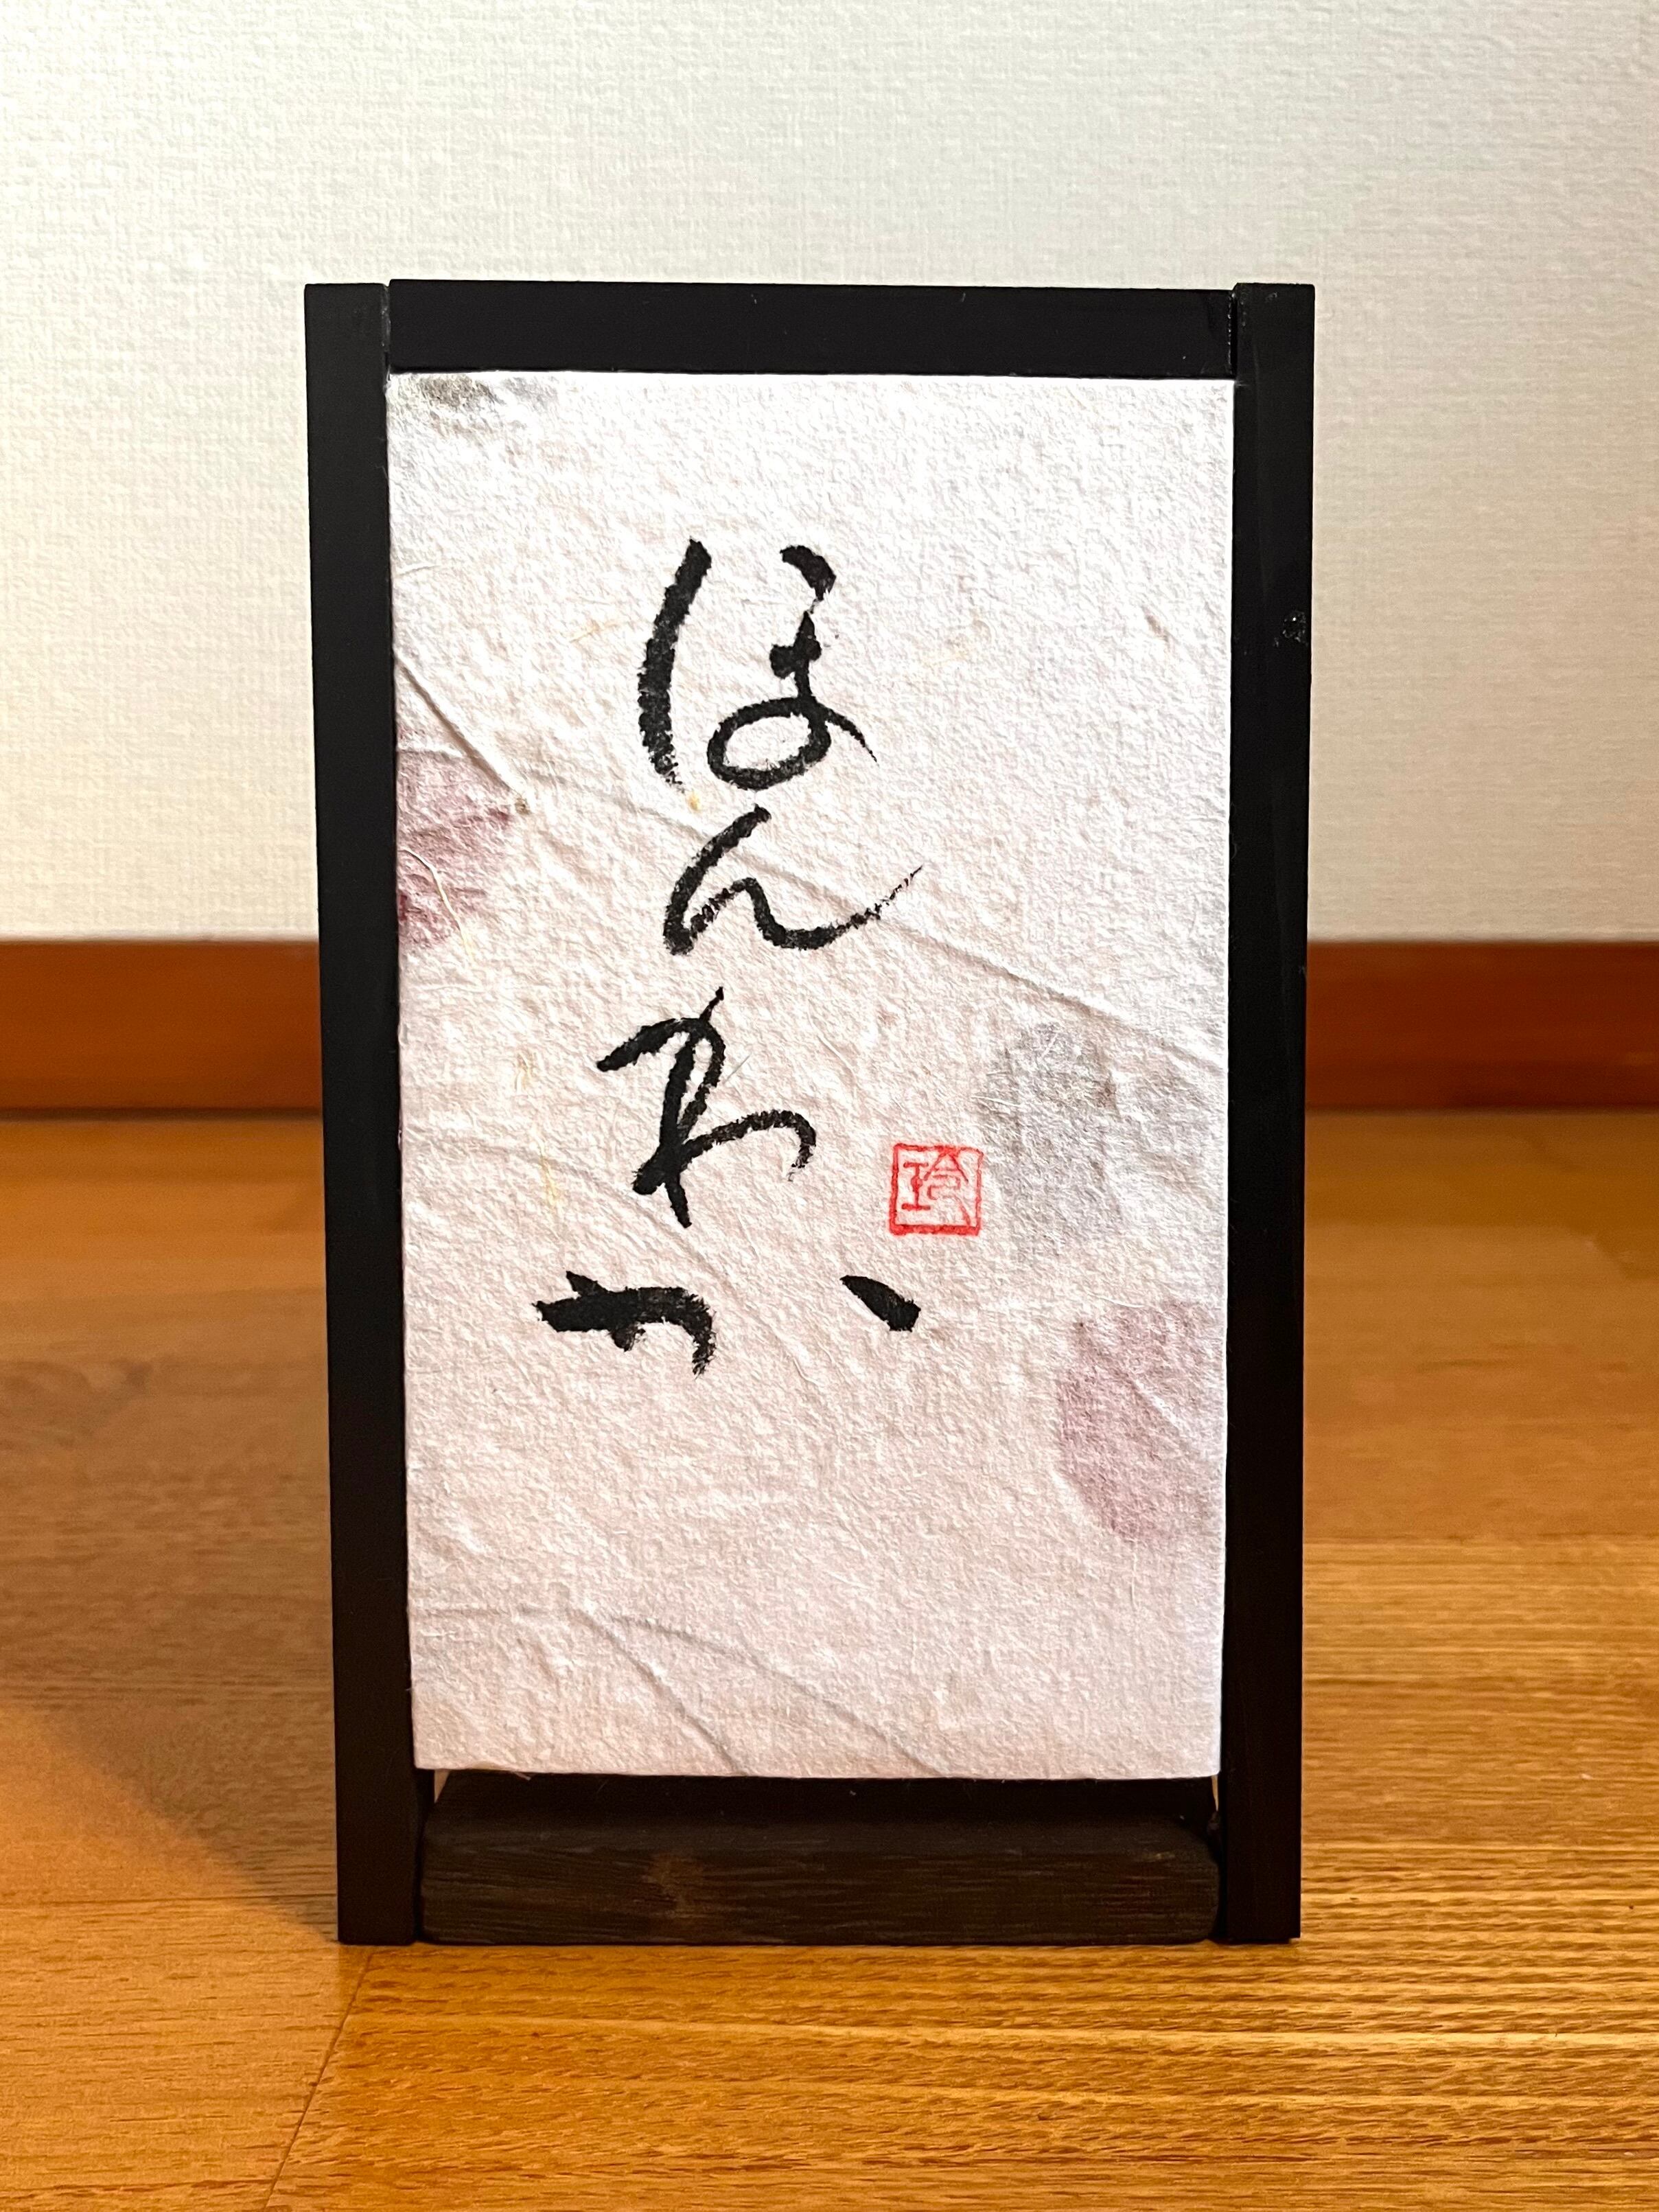 ほんわか
玲